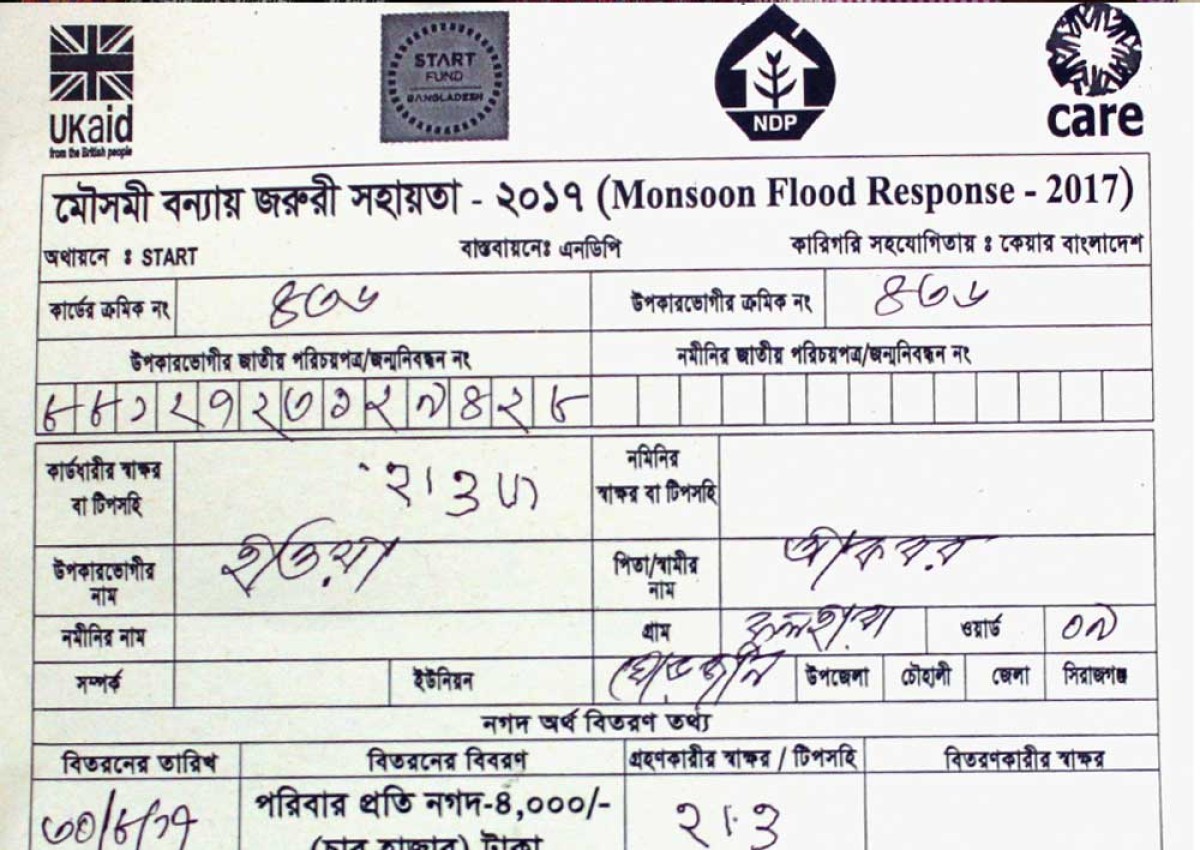 UKaid
from the British people
START
FUND
BANGLADESH
NDP
care
মৌসমী বন্যায় জরুরী সহায়তা - ২০১৭ (Monsoon Flood Response - 2017)
অর্থায়নে ঃ START বাস্তবায়নেঃ এনডিপি কারিগরি সহযোগিতায় ঃ কেয়ার বাংলাদেশ
কার্ডের ক্রমিক নং ৪৩৬ উপকারভোগীর ক্রমিক নং ৪৩৬
উপকারভোগীর জাতীয় পরিচয়পত্র/জন্মনিবন্ধন নং নমীনির জাতীয় পরিচয়পত্র/জন্মনিবন্ধন নং
৮৮১২৭২৩১২৯৪২৮
কার্ডধারীর স্বাক্ষর নমিনির
বা টিপসহি স্বাক্ষর বা টিপসহি
উপকারভোগীর পিতা/স্বামীর আকবর
নাম নাম
নমীনির নাম গ্রাম ওয়ার্ড ০৯
সম্পর্ক ইউনিয়ন ঘোড়জান উপজেলা চৌহালী জেলা সিরাজগঞ্জ
নগদ অর্থ বিতরণ তথ্য
বিতরনের তারিখ বিতরনের বিবরণ গ্রহণকারীর স্বাক্ষর / টিপসহি বিতরণকারীর স্বাক্ষর
৩০/৮/১৭ পরিবার প্রতি নগদ-৪,০০০/-
(চার হাজার) টাকা